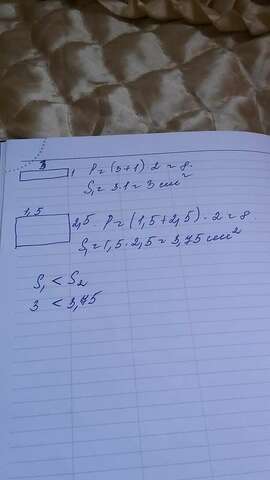 3
1 P = (3+1) 2 = 8.
S₁ = 3·1 = 3 cm²
1,5
2,5. P = (1,5+2,5)·2 = 8
S₂ = 1,5·2,5 = 3,75 cm²
S₁ < S₂
3 < 3,75